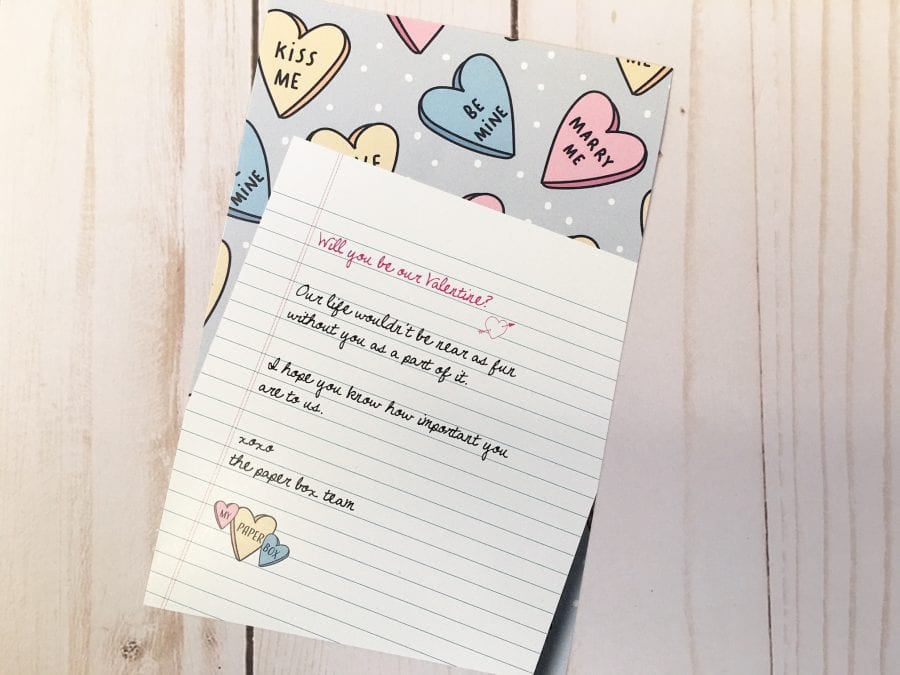 KISS
ME
BE
MINE
MARRY
ME
ME
MINE
Will you be our Valentine?
Our life wouldn't be near as fun
without you as a part of it.
I hope you know how important you
are to us.
xoxo
the paper box team
MY
PAPER
BOX